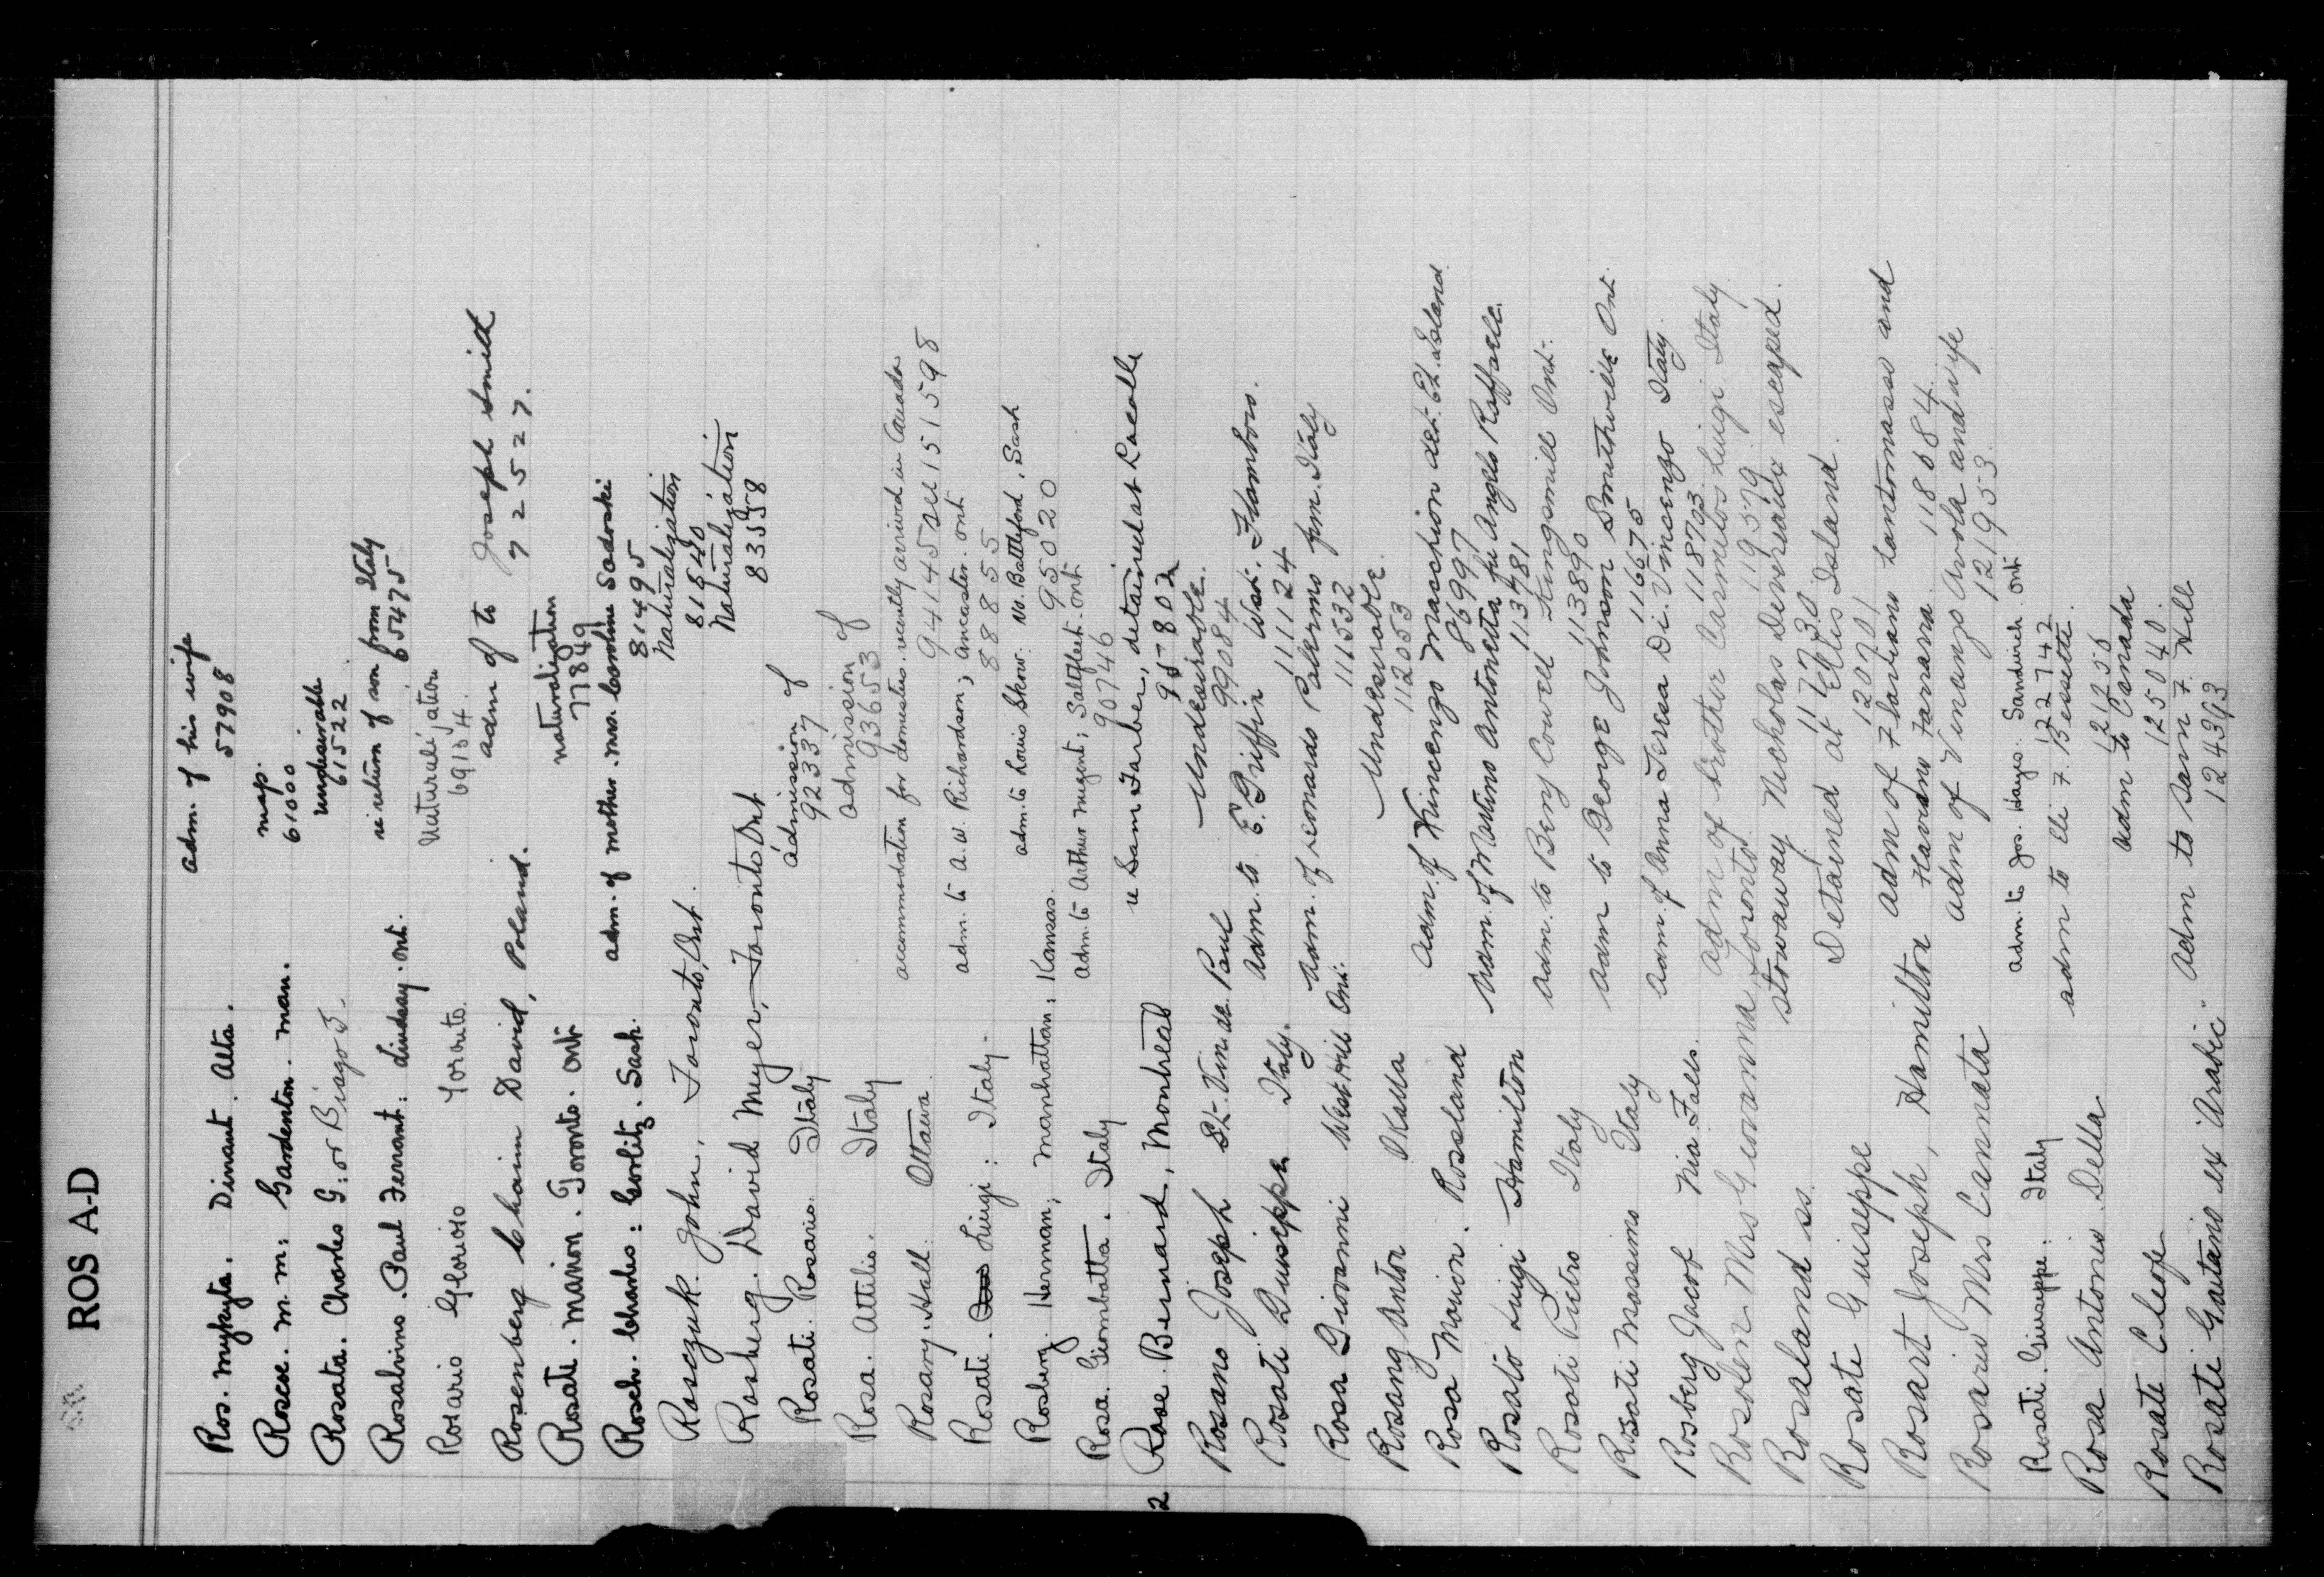 ROS A-D
Ros. Mykyta. Dinant. Alta. adm. of his wife
57908
Roscoe. M. M: Gardenton. Man. map.
61000
Rosata. Charles G: or Biago G. undesirable
61522
Rosalvino. Paul Ferrant: Lindsay. Ont. re return of son from Italy
65475
Rosario Glorioso Toronto. Naturalization
69184.
Rosenberg Chaim David, Poland. adm of to Joseph Smith
72527.
Rosati. Marion. Toronto. Ont naturalization
77849
Rosch. Charles: Gorlitz. Sask. adm. of mother. Mrs. Caroline Sadoski
81495
Rosczuk. John, Toronto, Ont. Naturalization
81540
Rosberg. David Myer, Toronto Ont Naturalization
83558
Rosati. Rosario Italy admission of
92337
Rosa. Attilio. Italy admission of
93653
Rosary. Hall. Ottawa accommodation for domestics. recently arrived in Canada
94145 see 151598
Rosati. Luigi: Italy. adm. to A. W. Richardson; Ancaster. Ont
88855
Rosberg. Herman; Manhattan; Kansas. adm. to Louis Skrow. No. Battleford, Sask
95020
Rosa. Giombatta. Italy adm. to Arthur Nugent; Saltfleet. Ont
90746
2 Rose. Bernard, Montreal re Sam Farber, detained at Lacolle
95802
Rosano Joseph St. Vin. de Paul Undesirable.
99084
Rosati Guiseppe Italy. Adm. to E. Griffin West. Flamboro.
111124
Rosa Giovanni West Hill Ont. Adm. of Leonardo Palermo from Italy
111532
Rosang Anton Okalla Undesirable
112053
Rosa Marion. Rossland Adm. of Vincenzo Macchion det. El. Island
86997
Rosato Luigi Hamilton Adm. of Martino Antonetta fu Angelo Raffaele
113781
Rosati Pietro Italy Adm. to Benj Cowell Kingsmill Ont.
113890
Rosati Massimo Italy Adm to George Johnson Smithville Ont.
116675
Rosberg Jacof Nia. Falls. Adm. of Anna Teresa Di Vincenzo Italy.
118703
Rosolen Mrs Giovanna, Toronto Adm of brother Carmitos Luigi Italy
119579
Rosaland ss. stowaway Nicholas Deveraide escaped.
117730
Rosati Guiseppe Detained at Ellis Island.
120701
Rosart Joseph, Hamilton adm of Flaviano Tantomasse and
Havano Farrara. 118084
Rosario Mrs Cannata adm of Vinanzo Avola and wife
121953
Rosati. Giuseppe. Italy adm. to Jos. Hayes. Sandwich. Ont
122742
Rosa Antonio Della adm to Eli F. Bessette.
121256
Rosati Cleofe adm to Canada
125040.
Rosati Gaetano ex "Arabic" adm to Sam F. Hill
124393